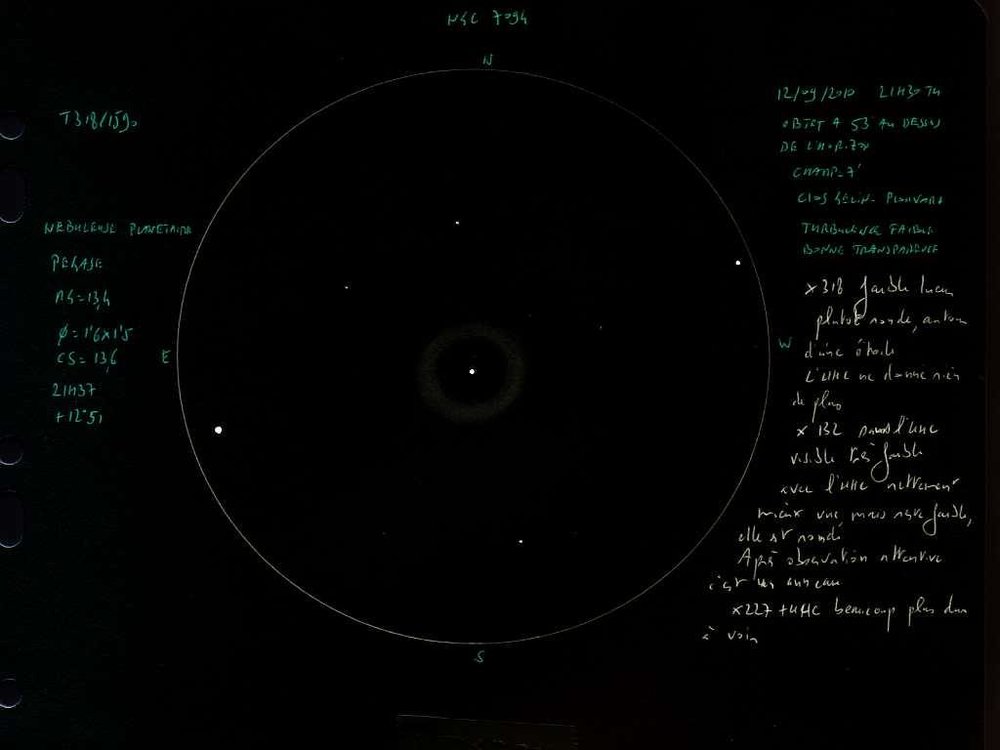 NGC 7094
N
T318/1590
NEBULEUSE PLANETAIRE
PEGASE
MG=13,4
Ø=1'6x1'5
CS=13,6
21H37
+12°51
E
W
S
12/09/2010 21H30 TU
OBJET A 53 AU DESSUS
DE L'HORIZON
CHAMP=7'
CLOS
TURBULENCE FAIBLE
BONNE TRANSPARENCE
x318 faible lueur
plutôt ronde, autour
d'une étoile
L'UHC ne donne rien
de plus
x132 sans l'UHC
visible très faible
avec l'UHC nettement
mieux vue, mais reste faible,
elle est ronde
Après observation attentive
c'est un anneau
x227 +UHC beaucoup plus dur
à voir